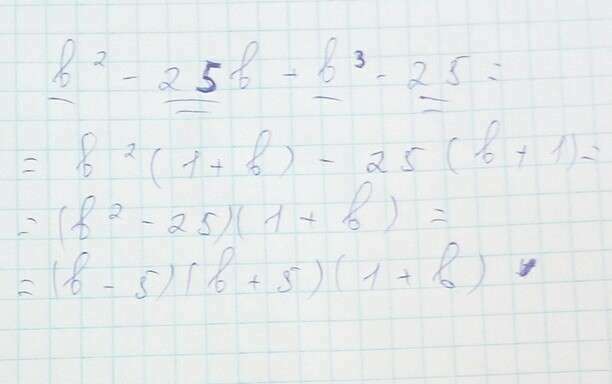 b² - 25b - b³ - 25 =
= b²(1 + b) - 25(b + 1) =
= (b² - 25)(1 + b) =
= (b - 5)(b + 5)(1 + b)